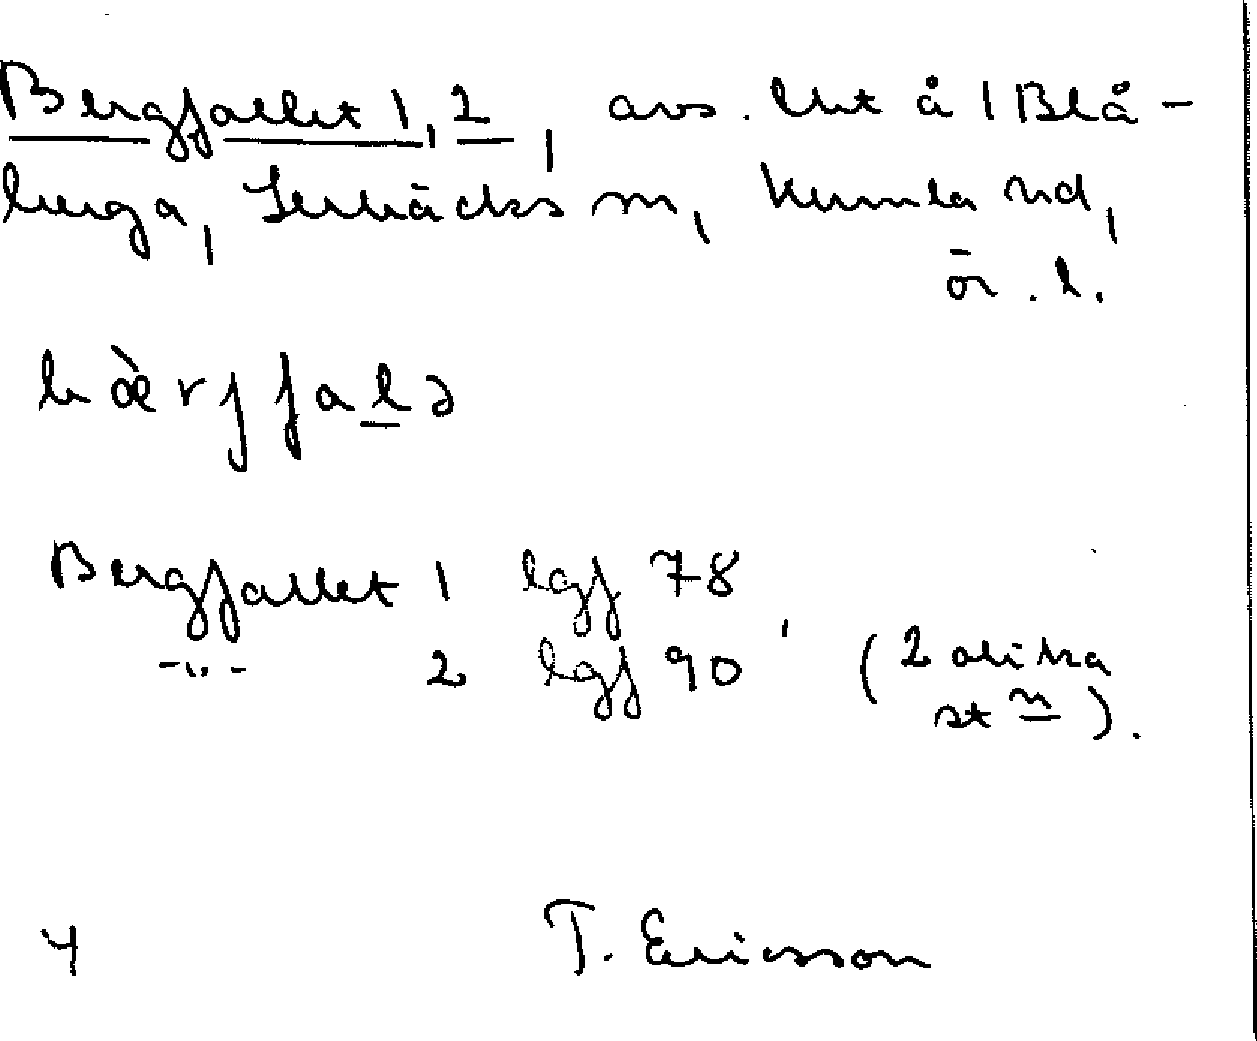 Bergfallet 1, 2, avs. lht å 1 Blå-
berga, Lerbäcks sn, Kumla hd,
ör. l.
bæ̀rjfalə
Bergfallet 1 lgf 78
-"- 2 lgf 90 (2 olika
st n).
4 T. Ericsson